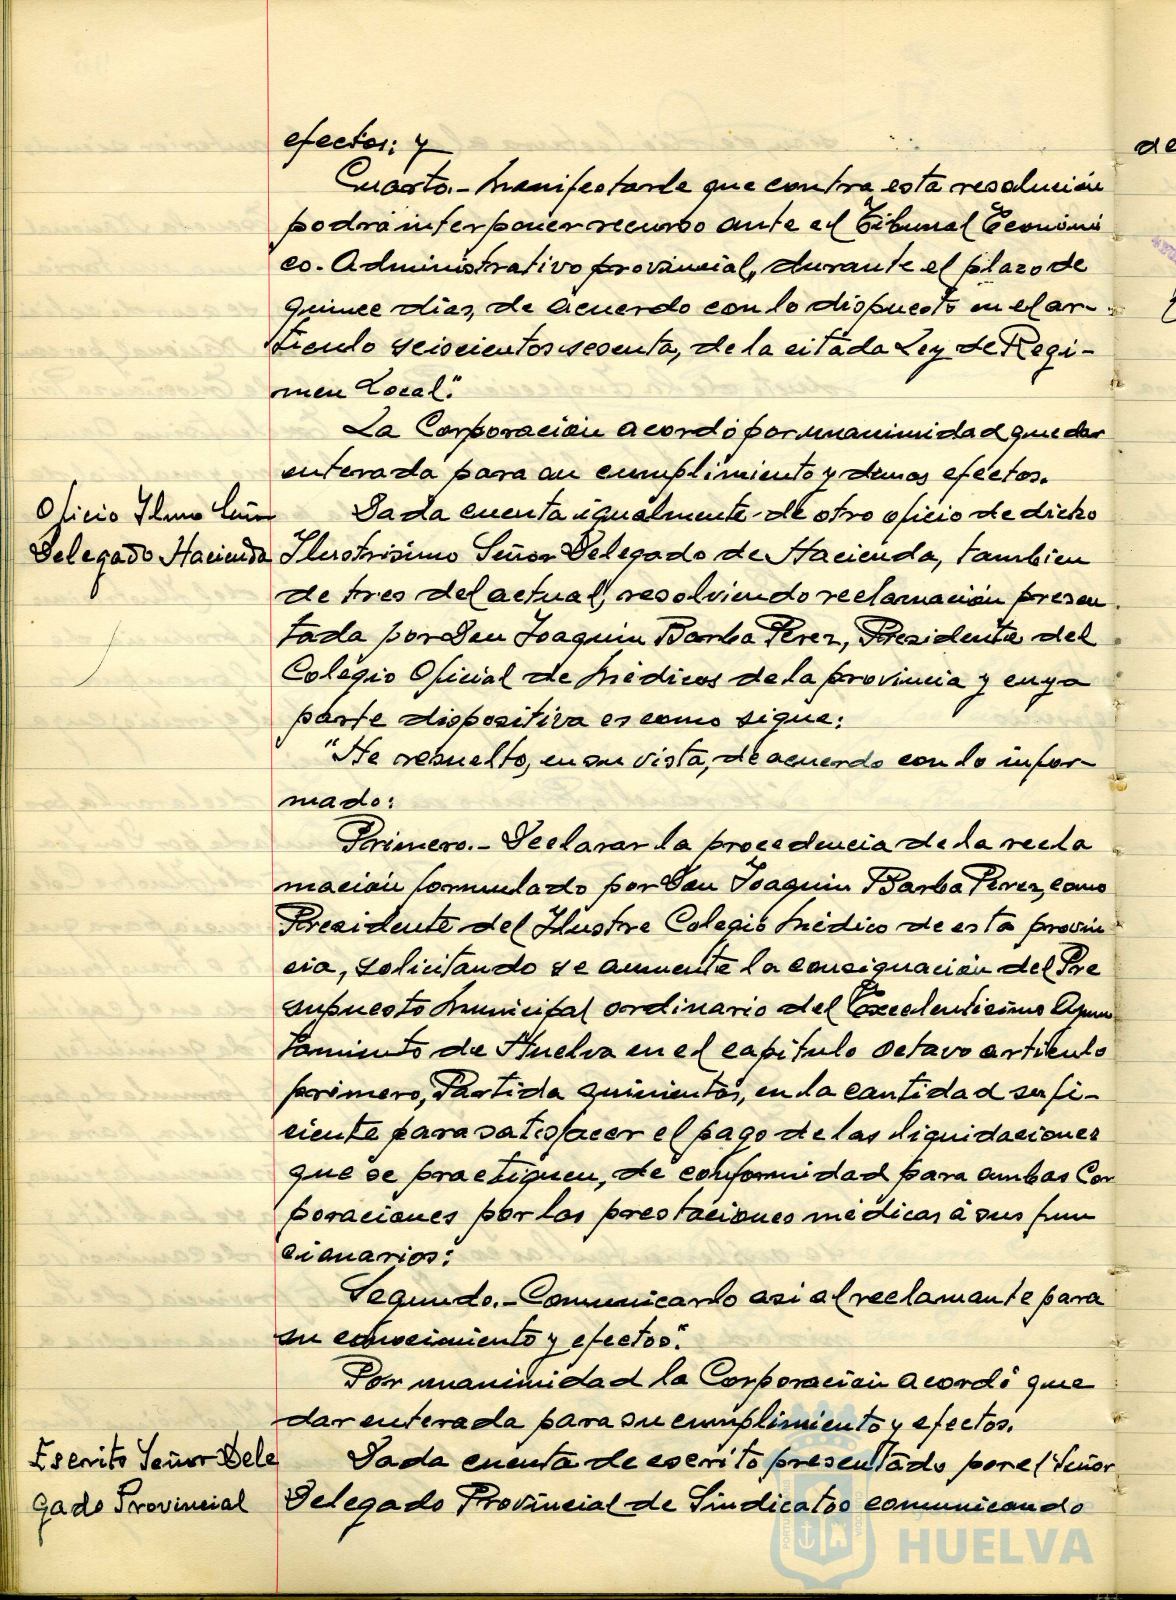 efectos; y
Cuarto.- Manifestarle que contra esta resolución
podrá interponer recurso ante el Tribunal Económi
co-Administrativo provincial, durante el plazo de
quince días, de acuerdo con lo dispuesto en el ar-
tículo seiscientos sesenta, de la citada Ley de Regi-
men Local".
La Corporación acordó por unanimidad quedar
enterada para su cumplimiento y demas efectos.
Oficio Ilmo Señor
Delegado Hacienda
Dada cuenta igualmente de otro oficio de dicho
Ilustrisimo Señor Delegado de Hacienda, tambien
de tres del actual, resolviendo reclamación presen
tada por Don Joaquin Barba Perez, Presidente del
Colegio Oficial de Médicos de la provincia y cuya
parte dispositiva es como sigue:
"He resuelto, en su vista, de acuerdo con lo infor-
mado:
Primero.- Declarar la procedencia de la recla
mación formulado por Don Joaquin Barba Perez, como
Presidente del Ilustre Colegio Médico de esta provin
cia, solicitando se aumente la consignación del Pre
supuesto Municipal ordinario del Excelentisimo Ayun
tamiento de Huelva en el capítulo octavo artículo
primero, Partida quinientas, en la cantidad sufi-
ciente para satisfacer el pago de las liquidaciones
que se practiquen, de conformidad para ambas Cor
poraciones por las prestaciones médicas á sus fun
cionarios:
Segundo.- Comunicarlo asi al reclamante para
su conocimiento y efectos".
Por unanimidad la Corporación acordó que
dar enterada para su cumplimiento y efectos.
Escrito Señor Dele
gado Provincial
Dada cuenta de escrito presentado por el Señor
Delegado Provincial de Sindicatos comunicando
de
HUELVA